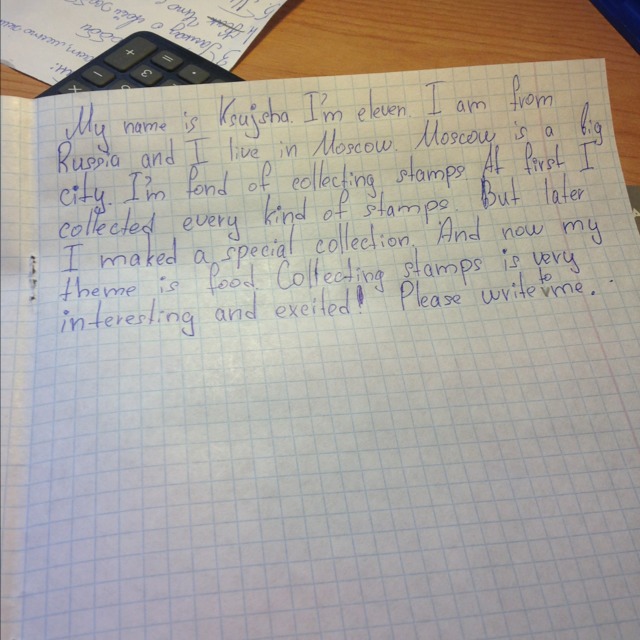 My name is Ksujsha. I'm eleven. I am from
Russia and I live in Moscow. Moscow is a big
city. I'm fond of collecting stamps. At first I
collected every kind of stamps. But later
I maked a special collection. And now my
theme is food. Collecting stamps is very
interesting and excited! Please write to me...